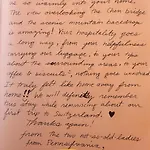 so warmly into your home.
The view overlooking the Lion bridge
and the scenic mountain backdrop
is amazing! Your hospitality goes
a long way, from your helpfulness
carrying our luggage, to your tips
about the surrounding areas, to your
coffee & biscuits, nothing goes unnoticed
It truly felt like home away from
home!! We will definetly remember
this stay while reminicing about our
first trip to Switzerland. ♥
Thankyou again!
from the two not-so-old ladies
from Pennsylvania,